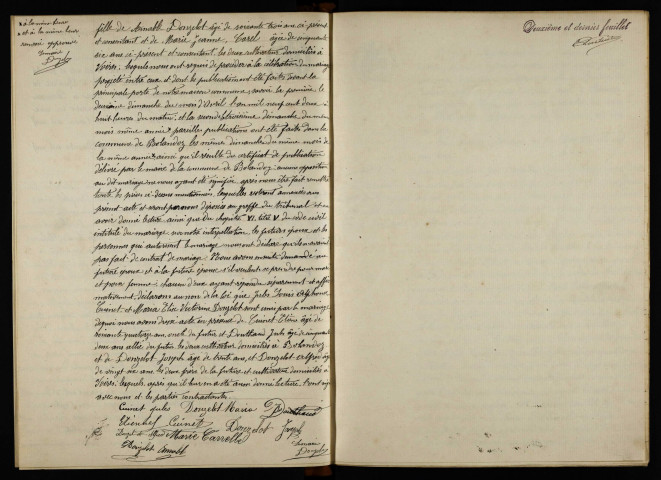 à la même heure
et à la même heure
renvois approuvés
Simon
Donzelot
fille de Arnold Donzelot âgé de soixante trois ans ci présent
et consentant et de Marie Jeanne Carel âgée de cinquante
six ans ci présent et consentant, les deux cultivateurs domiciliés à
lesquels nous ont requis de procéder à la célébration du mariage
projeté entre eux et dont les publications ont été faites devant la
principale porte de notre maison commune, savoir la première, le
deuxième dimanche du mois d'Avril l'an mil neuf cent deux à
huit heures du matin, et la seconde le troisième dimanche du même
mois même année pareille publications ont été faites dans la
commune de Bolandoz les mêmes dimanches du même mois de
la même année ainsi qu'il résulte du certificat de publication
délivré par le maire de la commune de Bolandoz aucune opposition
au dit mariage ne nous ayant été signifiée après nous être fait remettre
toutes les pièces ci-dessus mentionnées, lesquelles resteront annexées au
présent acte et seront déposées au greffe du tribunal et en
avoir donné lecture ainsi que du chapitre VI, titre V du code civil
intitulé du mariage sur notre interpellation, les futurs époux et les
personnes qui autorisent le mariage nous ont déclaré qu'il n'a
pas fait de contrat de mariage. Nous avons ensuite demandé au
futur époux et à la future épouse s'il veulent se prendre pour mari
et pour femme; chacun d'eux ayant répondu séparément et affir
mativement, déclarons au nom de la loi que Jules Louis Alphonse
Cuinet et Marie Elise Victorine Donzelot sont unis par le mariage
de quoi nous avons dressé acte en présence de Cuinet âgé de
soixante quatorze ans, oncle du futur et Jules âgé de cinquante
deux ans allié du futur les deux cultivateurs domiciliés à Bolandoz
et de Donzelot Joseph âgé de trente ans, et Donzelot Alfred âgé
de vingt six ans les deux frères de la future et cultivateurs domiciliés à
lesquels, après qu'il leur en a été aussi donné lecture, l'ont signé
avec nous et les parties contractantes.
Cuinet jules Donzelot Maria
Cuinet Donzelot Joseph
Marie
Donzelot Simon
Donzelot
Deuxième et dernier feuillet